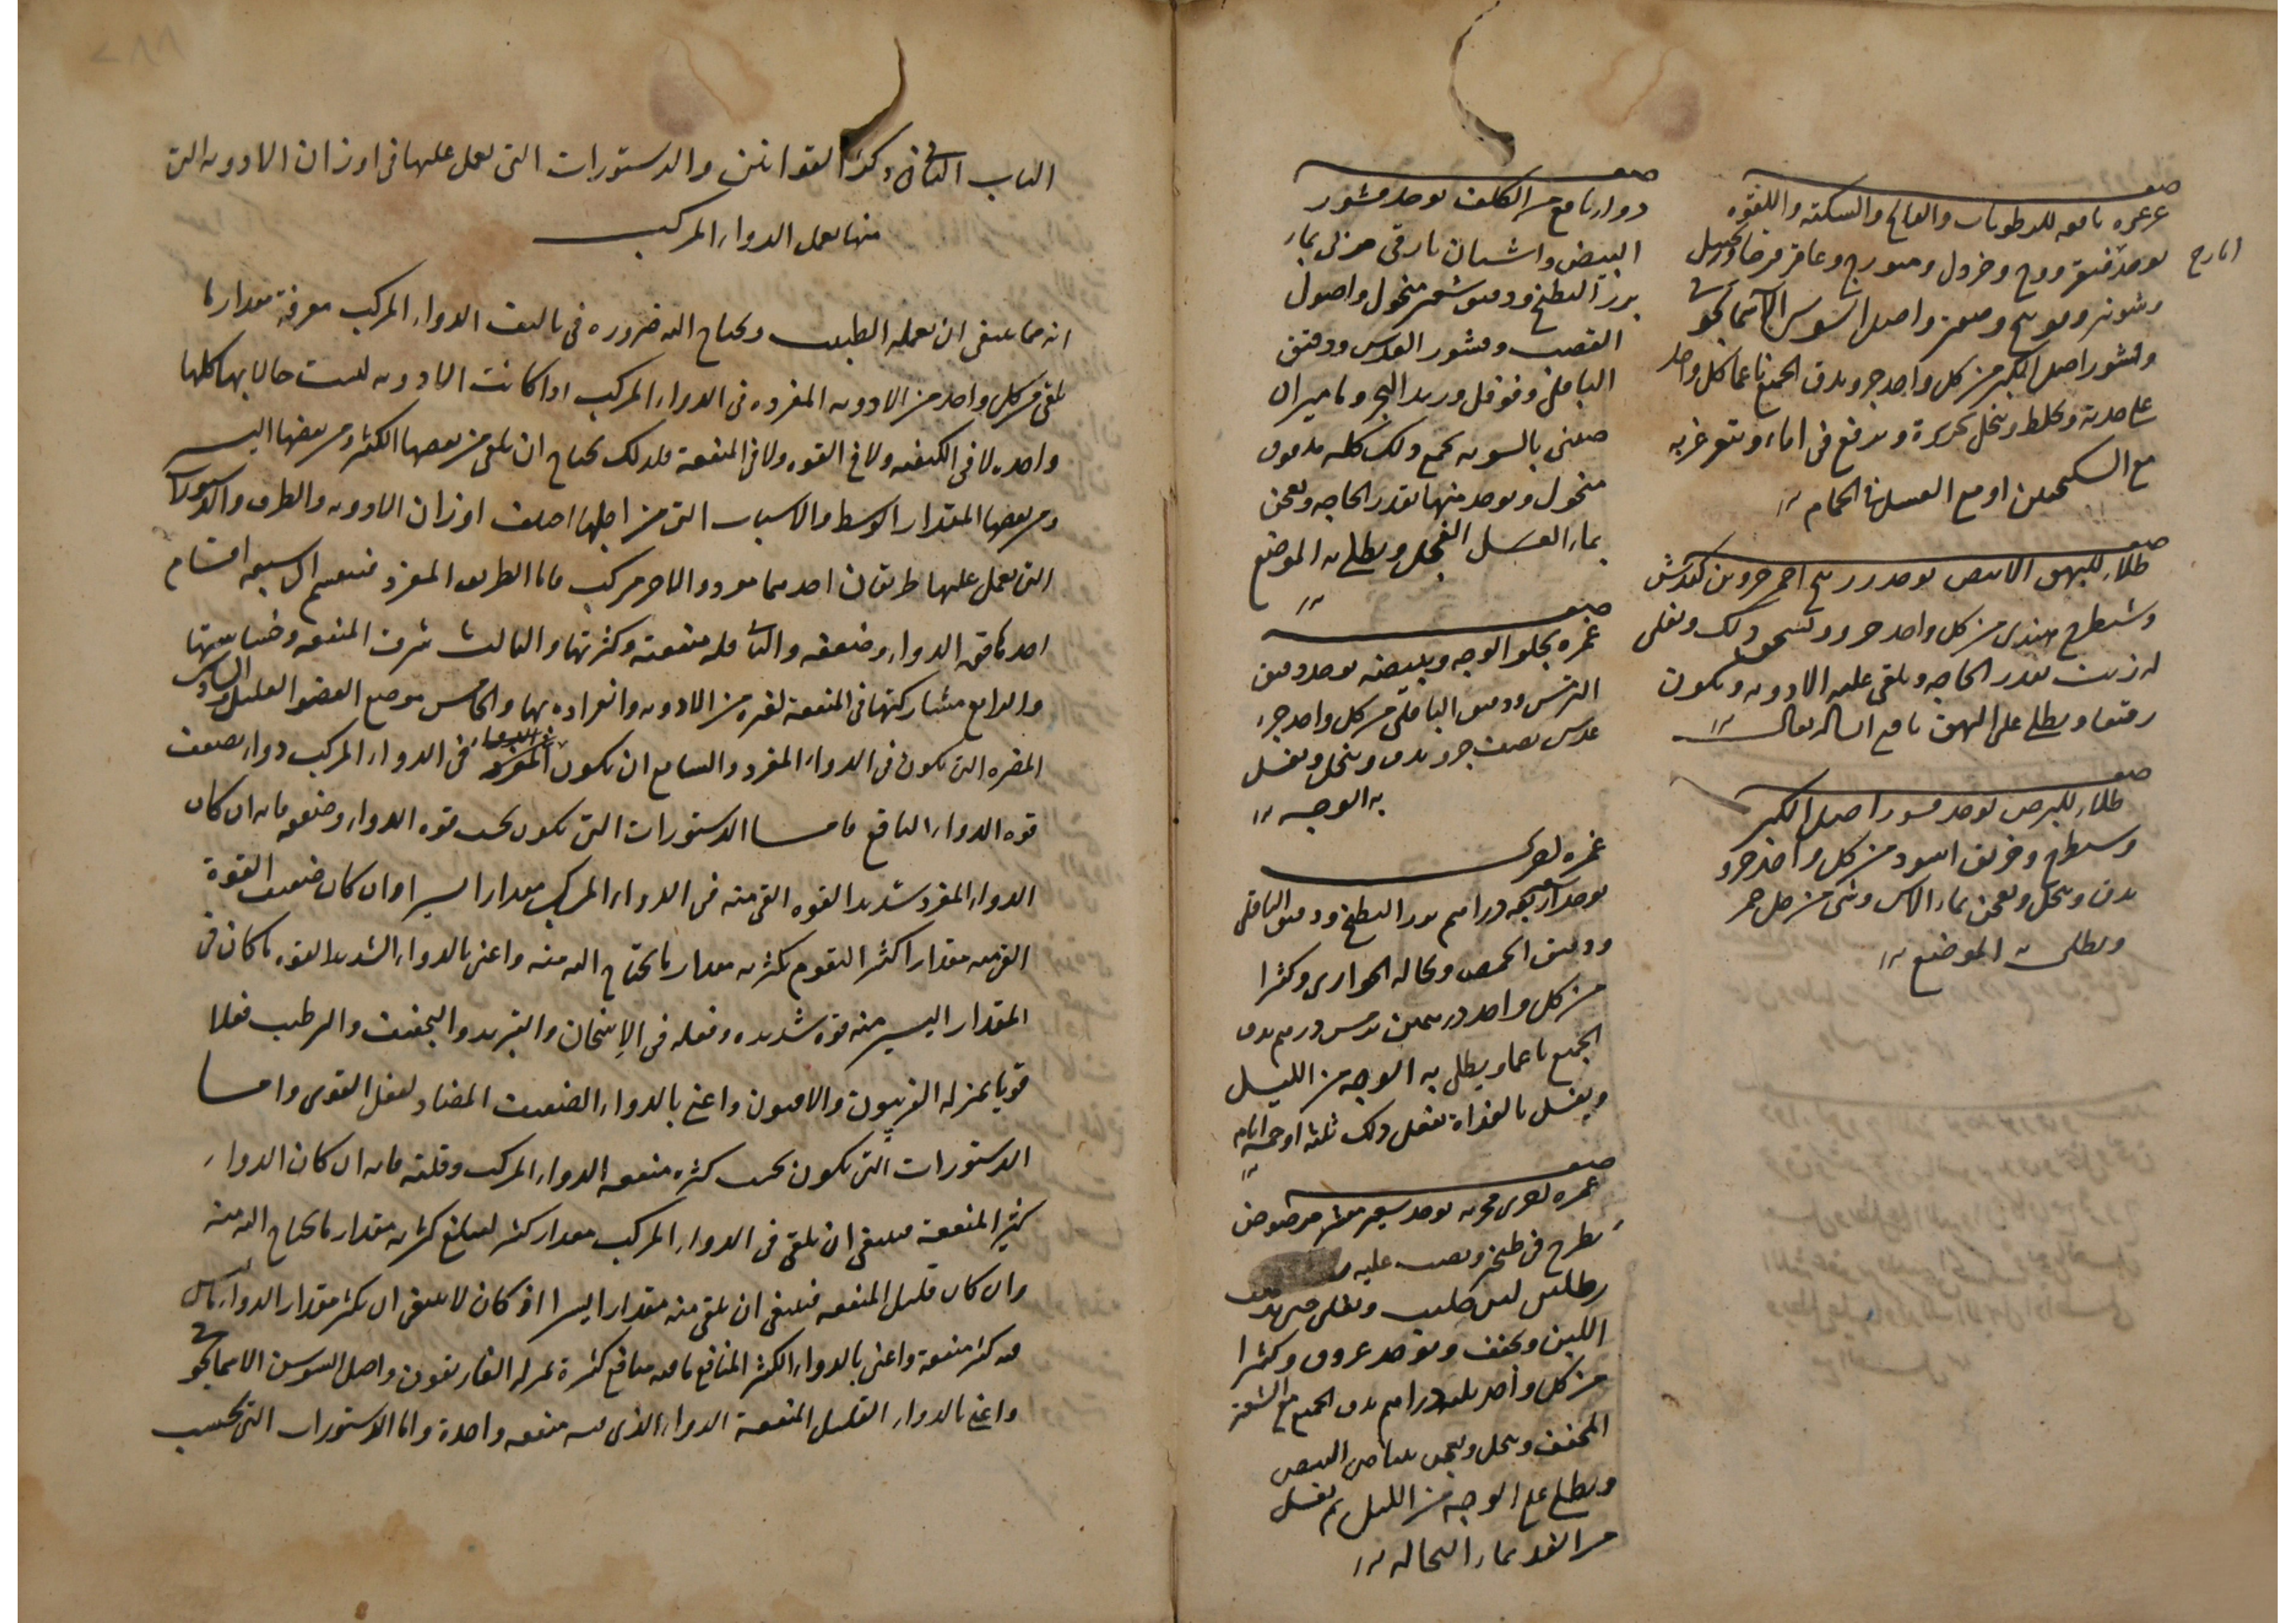 صفه
غرغره نافعه للرطوبات والفالج والسكته واللقوه
يوخذ فيقرا ووج وخردل وميويزج وعاقرقرحا وزنجبيل
ايارج
وشونيز وفوتنج وصعتر واصل السوس الاسمانجوني
وقشور اصل الكبر من كل واحد جزو يدق الجميع ناعما كل واحد
على حدته ويخلط وينخل بحريرة ويرفع في اناء ويتغرغر به
مع السكنجبين او مع العسل في الحمام
صفه
طلاء للبهق الابيض يوخذ زرنيخ احمر جزوين كندش
وشيطرج هندي من كل واحد جزو ويسحق ذلك ويغلى
له زيت بقدر الحاجه ويلقى عليه الادويه ويكون
رقيقا ويطلى على البهق نافع ان شاالله تعالى
صفه
طلاء للبرص يوخذ قشور اصل الكبر
وشيطرج وخربق اسود من كل واحد جزو
يدق وينخل ويعجن بماء الاس وشي من خل خمر
ويطلى به الموضع
صفه
دواء نافع من الكلف يوخذ قشور
البيض واشنان بارقي مربى بماء
بزر البطيخ ودقيق شعير منخول واصول
القصب وقشور العدس ودقيق
الباقلى وفوفل وزبد البحر وماميران
صيني بالسويه يجمع ذلك كله مدقوق
منخول ويوخذ منها بقدر الحاجه ويعجن
بماء العسل الفجل ويطلى به الموضع
صفه
غمره يجلو الوجه ويبيضه يوخذ دقيق
الترمس ودقيق الباقلى من كل واحد جزء
عدس نصف جزو يدق وينخل ويغسل
به الوجه
غمره اخرى
يوخذ اربعه دراهم بزر البطيخ ودقيق الباقلى
ودقيق الحمص ونخاله الحوارى وكثيرا
من كل واحد درهمين ترمس درهم يدق
الجميع ناعما ويطلى به الوجه من الليل
ويغسل بالغداة يفعل ذلك ثلثه او خمسه ايام
صفه
غمره اخرى مجربه يوخذ شعير مقشر مرضوض
يطرح في طنجير ويصب عليه
رطلين لبن حليب ويغلى حتى
اللبن ويجفف ويوخذ عروق وكثيرا
من كل واحد ثلثه دراهم يدق الجميع مع الشعير
المجفف وينخل ويعجن ببياض البيض
ويطلى على الوجه من الليل ثم يغسل
من الغد بماء النخاله
الباب الثاني في ذكر القوانين والدستورات التي يعمل عليها في اوزان الادويه التي
منها يعمل الدواء المركب
انه مما ينبغي ان يعمله الطبيب ويحتاج اليه ضروره في تاليف الدواء المركب معرفة مقدار ما
يلقى من كل واحد من الادويه المفرده في الدواء المركب اذا كانت الادويه ليست حالاتها كلها
واحده لا في الكيفيه ولا في القوه ولا في المنفعة فلذلك يحتاج ان يلقى من بعضها الكثير ومن بعضها اليسير
ومن بعضها المقدار الوسط والاسباب التي من اجلها اختلفت اوزان الادويه والطرق والدستورات
التي يعمل عليها طريقان احدهما مفرد والاخر مركب فاما الطريق المفرد فينقسم الى سبعه اقسام
احدها قوه الدواء وضعفه والثاني قله منفعته وكثرتها والثالث شرف المنفعه وخساستها
والرابع مشاركتها في المنفعة لغيره من الادويه وانفراده بها والخامس موضع العضو العليل والسادس
المضره التي تكون في الدواء المفرد والسابع ان يكون المفرد في الدواء المركب دواء يضعف
قوه الدواء النافع فاما الدستورات التي تكون بحسب قوه الدواء وضعفه فانه ان كان
الدواء المفرد شديد القوه القي منه في الدواء المركب مقدارا يسيرا وان كان ضعيف القوة
القي منه مقدارا كثيرا لتقوم كثرته مقدار ما يحتاج اليه منه واعني بالدواء الشديد القوه ما كان في
المقدار اليسير منه قوه شديده وفعله في الاسخان والتبريد والتجفيف والترطيب فعلا
قويا بمنزله الفربيون والافيون واعني بالدواء الضعيف المضاد لفعل القوى واما
الدستورات التي تكون بحسب كثره منفعه الدواء المركب وقلته فانه ان كان الدواء
كثير المنفعة فينبغي ان يلقى في الدواء المركب مقدار كثير ليبلغ كثرته مقدار ما يحتاج اليه منه
وان كان قليل المنفعه فينبغي ان يلقى منه مقدارا يسيرا اذ كان لا ينبغي ان يكثر مقدار الدواء
فيه كثير منفعة واعني بالدواء الكثير المنافع ما فيه منافع كثيرة بمنزله الغاريقون واصل السوسن الاسمانجوني
واعني بالدواء القليل المنفعة الدواء الذي فيه منفعه واحدة واما الدستورات التي بحسب